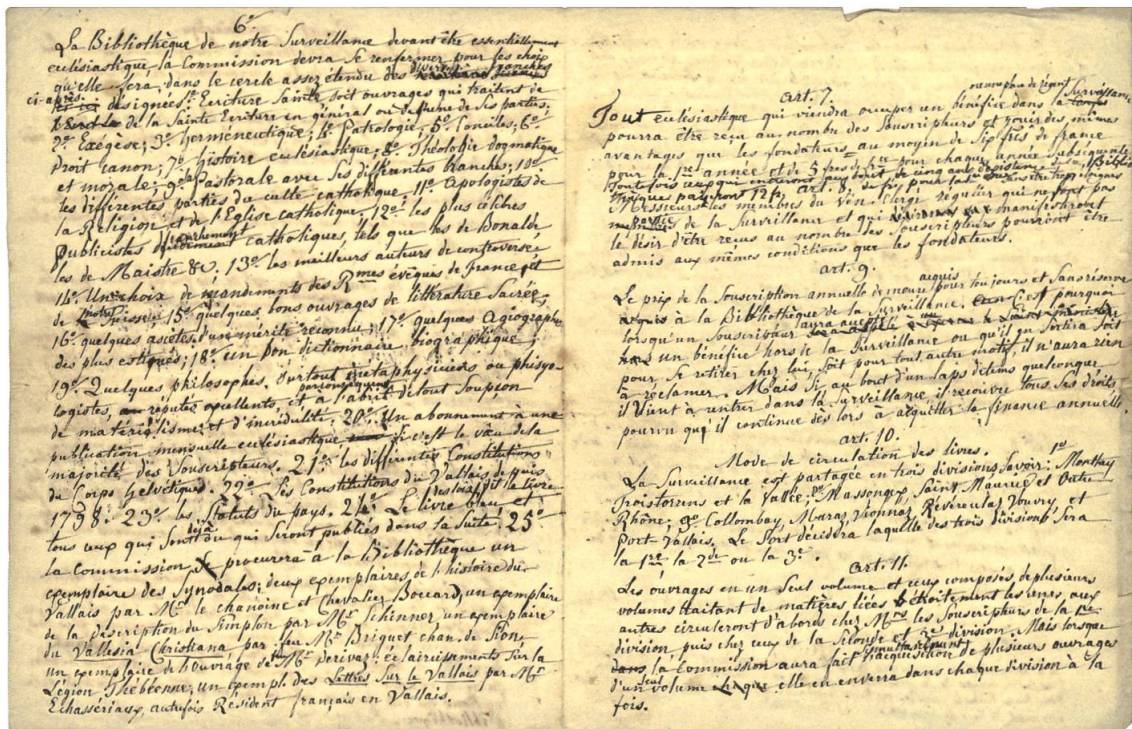 6º
La Bibliothèque de notre Surveillance devant être essentiellement
ecclésiastique, la Commission devra se renfermer, pour les choix
qu'elle fera, dans le cercle assez étendu des diverses branches
ci-après designées: 1º Ecriture Sainte soit ouvrages qui traitent de
de la Sainte Ecriture en général ou d'aucune de ses parties;
2º Exégèse; 3º herméneutique; 4º Patrologie; 5º Conciles; 6º
Droit canon; 7º histoire ecclésiastique; 8º Théologie dogmatique
et morale; 9º Pastorale avec ses différentes branches; 10º
les différentes parties du culte catholique. 11º Apologistes de
la Religion et de l'Eglise catholique. 12º les plus célèbres
Publicistes catholiques, tels que les de Bonald,
les de Maistre &c. 13º les meilleurs auteurs de controverse;
14º Un choix de mandements des Rmes évêques de France et
de notre Suisse; 15º quelques bons ouvrages de littérature Sacrée;
16º quelques ascètes d'un mérite reconnu; 17º quelques agiographes
des plus estimés; 18º un bon dictionnaire biographique;
19º Quelques philosophes, surtout métaphysiciens ou phisyo-
logistes, réputés excellents, et par conséquent à l'abri de tout soupçon
de matérialisme et d'incrédulité. 20º Un abonnement à une
publication mensuelle ecclésiastique si c'est le vœu de la
majorité des Souscripteurs. 21º les différentes Constitutions
du Corps helvétique. 22º Les Constitutions du Vallais depuis
1798. 23º les Statuts du pays. 24º Le livre bleu et
tous ceux qui sont déjà ou qui seront publiés dans la suite. 25º
la Commission procurera à la Bibliothèque un
exemplaire des Synodales; deux exemplaires de l'histoire du
Vallais par Mr le chanoine et Chevalier Boccard, un exemplaire
de la Description du Simplon par Mr Schinner, un exemplaire
du Vallesia Christiana, par feu Mr Briguet chan. de Sion,
un exemplaire de l'ouvrage de feu Mr Derivaz: éclaircissements sur la
Légion Thébéenne, un exempl. des Lettres sur le Vallais par Mr
Echassériaux, autrefois Résident français en Vallais.
art. 7.
Tout ecclésiastique qui viendra occuper un bénéfice dans la Surveillance
pourra être reçu au nombre des Souscripteurs et jouir des mêmes
avantages que les fondateurs au moyen de six frcs de france
pour la 1re année et de 5 frcs de fce pour chaque année subséquente
art. 8.
Messieurs les membres du Ven. Clergé régulier qui ne font pas
partie de la Surveillance et qui manifesteront
le désir d'être reçus au nombre des Souscripteurs pourront être
admis aux mêmes conditions que les fondateurs.
art. 9.
Le prix de la Souscription annuelle demeure acquis pour toujours et sans réserve
à la Bibliothèque de la Surveillance. C'est pourquoi
lorsqu'un Souscripteur aura accepté
un bénéfice hors de la Surveillance ou qu'il en sortira soit
pour se retirer chez lui, soit pour tout autre motif, il n'aura rien
à réclamer. Mais si, au bout d'un laps de tems quelconque
il vient à rentrer dans la Surveillance, il recouvre tous ses droits
pourvu qu'il continue dès lors à acquitter la finance annuelle.
art. 10.
Mode de circulation des livres.
La Surveillance est partagée en trois divisions savoir: 1º Monthey
Troistorrens et la Vallée; 2º Massongex, Saint Maurice et Outre-
Rhône; 3º Collombay, Muraz, Vionnaz, Révéreulaz, Vouvry et
Port-Vallais. Le sort décidera laquelle des trois divisions sera
la 1re la 2de ou la 3e.
art. 11.
Les ouvrages en un seul volume et ceux composés de plusieurs
volumes traitant de matières liées étroitement les unes aux
autres circuleront d'abord chez Mrs les Souscripteurs de la 1re
division, puis chez ceux de la seconde et 3e division. Mais lorsque
la Commission aura fait simultanément l'acquisition de plusieurs ouvrages
d'un seul volume, elle en enverra dans chaque division à la
fois.